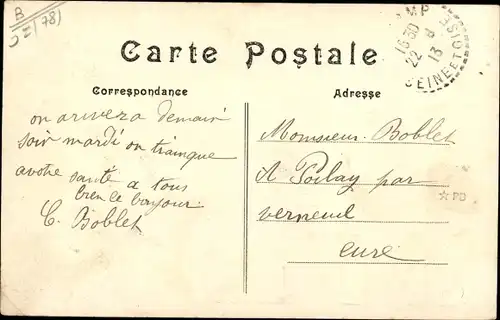 B
(78)
Carte Postale
Correspondance
Adresse
on arivera demain
soir mardi on trainque
a votre santé a tous
bien le bonjour
C. Boblet
Monsieur Boblet
A Poilay par
verneuil
eure
16 30
22 8
13
SEINE ET OISE
☆ PD